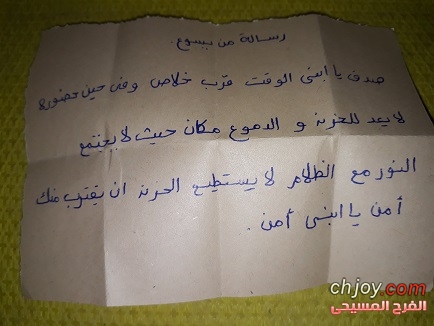 رسالة من يسوع.
صدق يا ابنى الوقت قرب خلاص وفى حين حضوره
لا يعد للحزن و الدموع مكان حيث لا يجتمع
النور مع الظلام لا يستطيع الحزن ان يقترب منك
أمن يا ابنى أمن.
chjoy.com
الفرح المسيحى